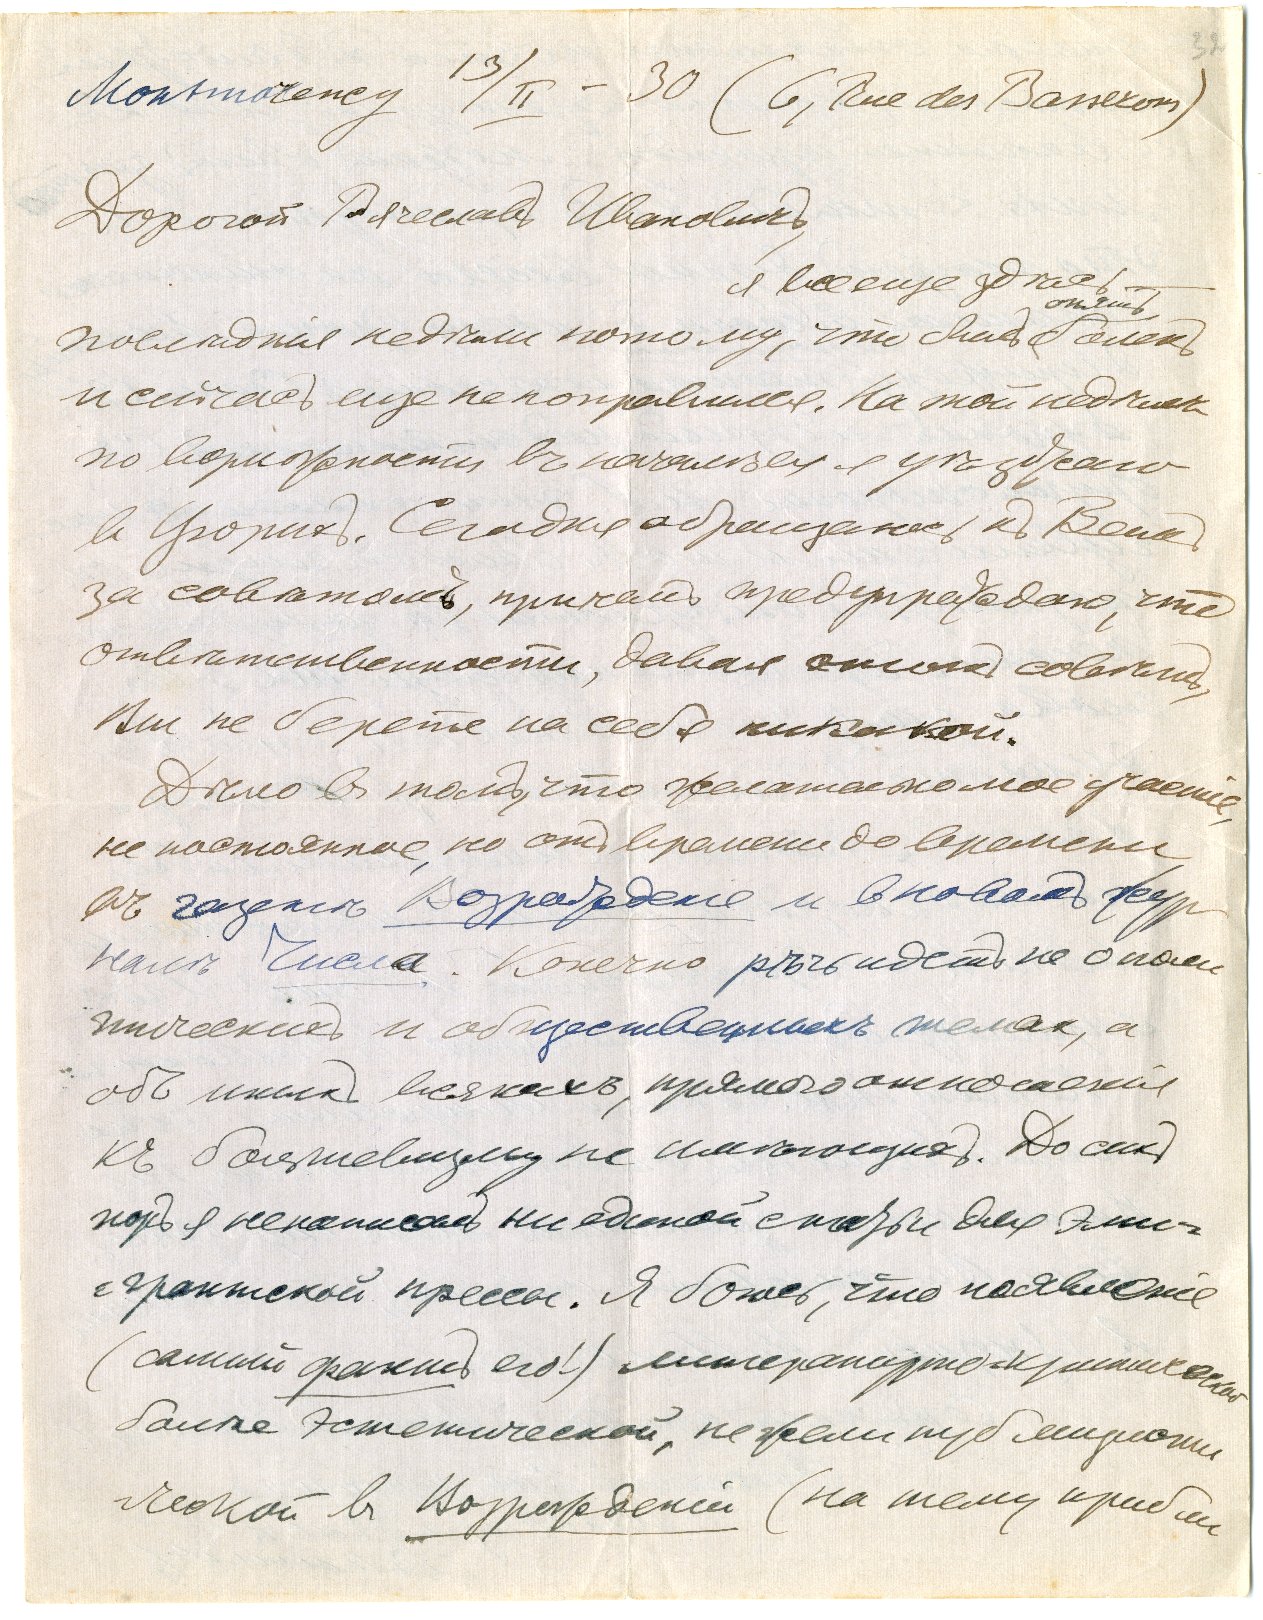 Montmorency 13/II – 30 (6, Rue des Basserons)
Дорогой Вячеславъ Ивановичъ,
я все еще здѣсь —
опять
послѣднiя недѣли потому, что былъ боленъ
и сейчасъ еще не поправился. На той недѣлѣ
по возможности въ началѣ ея я уѣзжаю
в Цюрихъ. Сегодня обращаюсь къ Вамъ
за совѣтомъ, причемъ предупреждаю, что
отвѣтственности, давая совѣтъ,
Вы не берете на себя никакой.
Дѣло в томъ, что желательно мое участiе,
не постоянное, но отъ времени до времени
въ газетѣ Возрожденiе и в новомъ жур
налѣ Числа. Конечно рѣчь идетъ не о поли
тическихъ и общественныхъ темах, а
объ иныхъ всякихъ, прямого отношенiя
къ большевизму не имѣющихъ. До сихъ
поръ я не написалъ ни единой статьи для эми-
грантской прессы. Я боюсь, что появленiе
(самый фактъ его!) литературно-критической
болѣе эстетической, нежели публицисти
ческой в Возрожденiи (на тему прибли